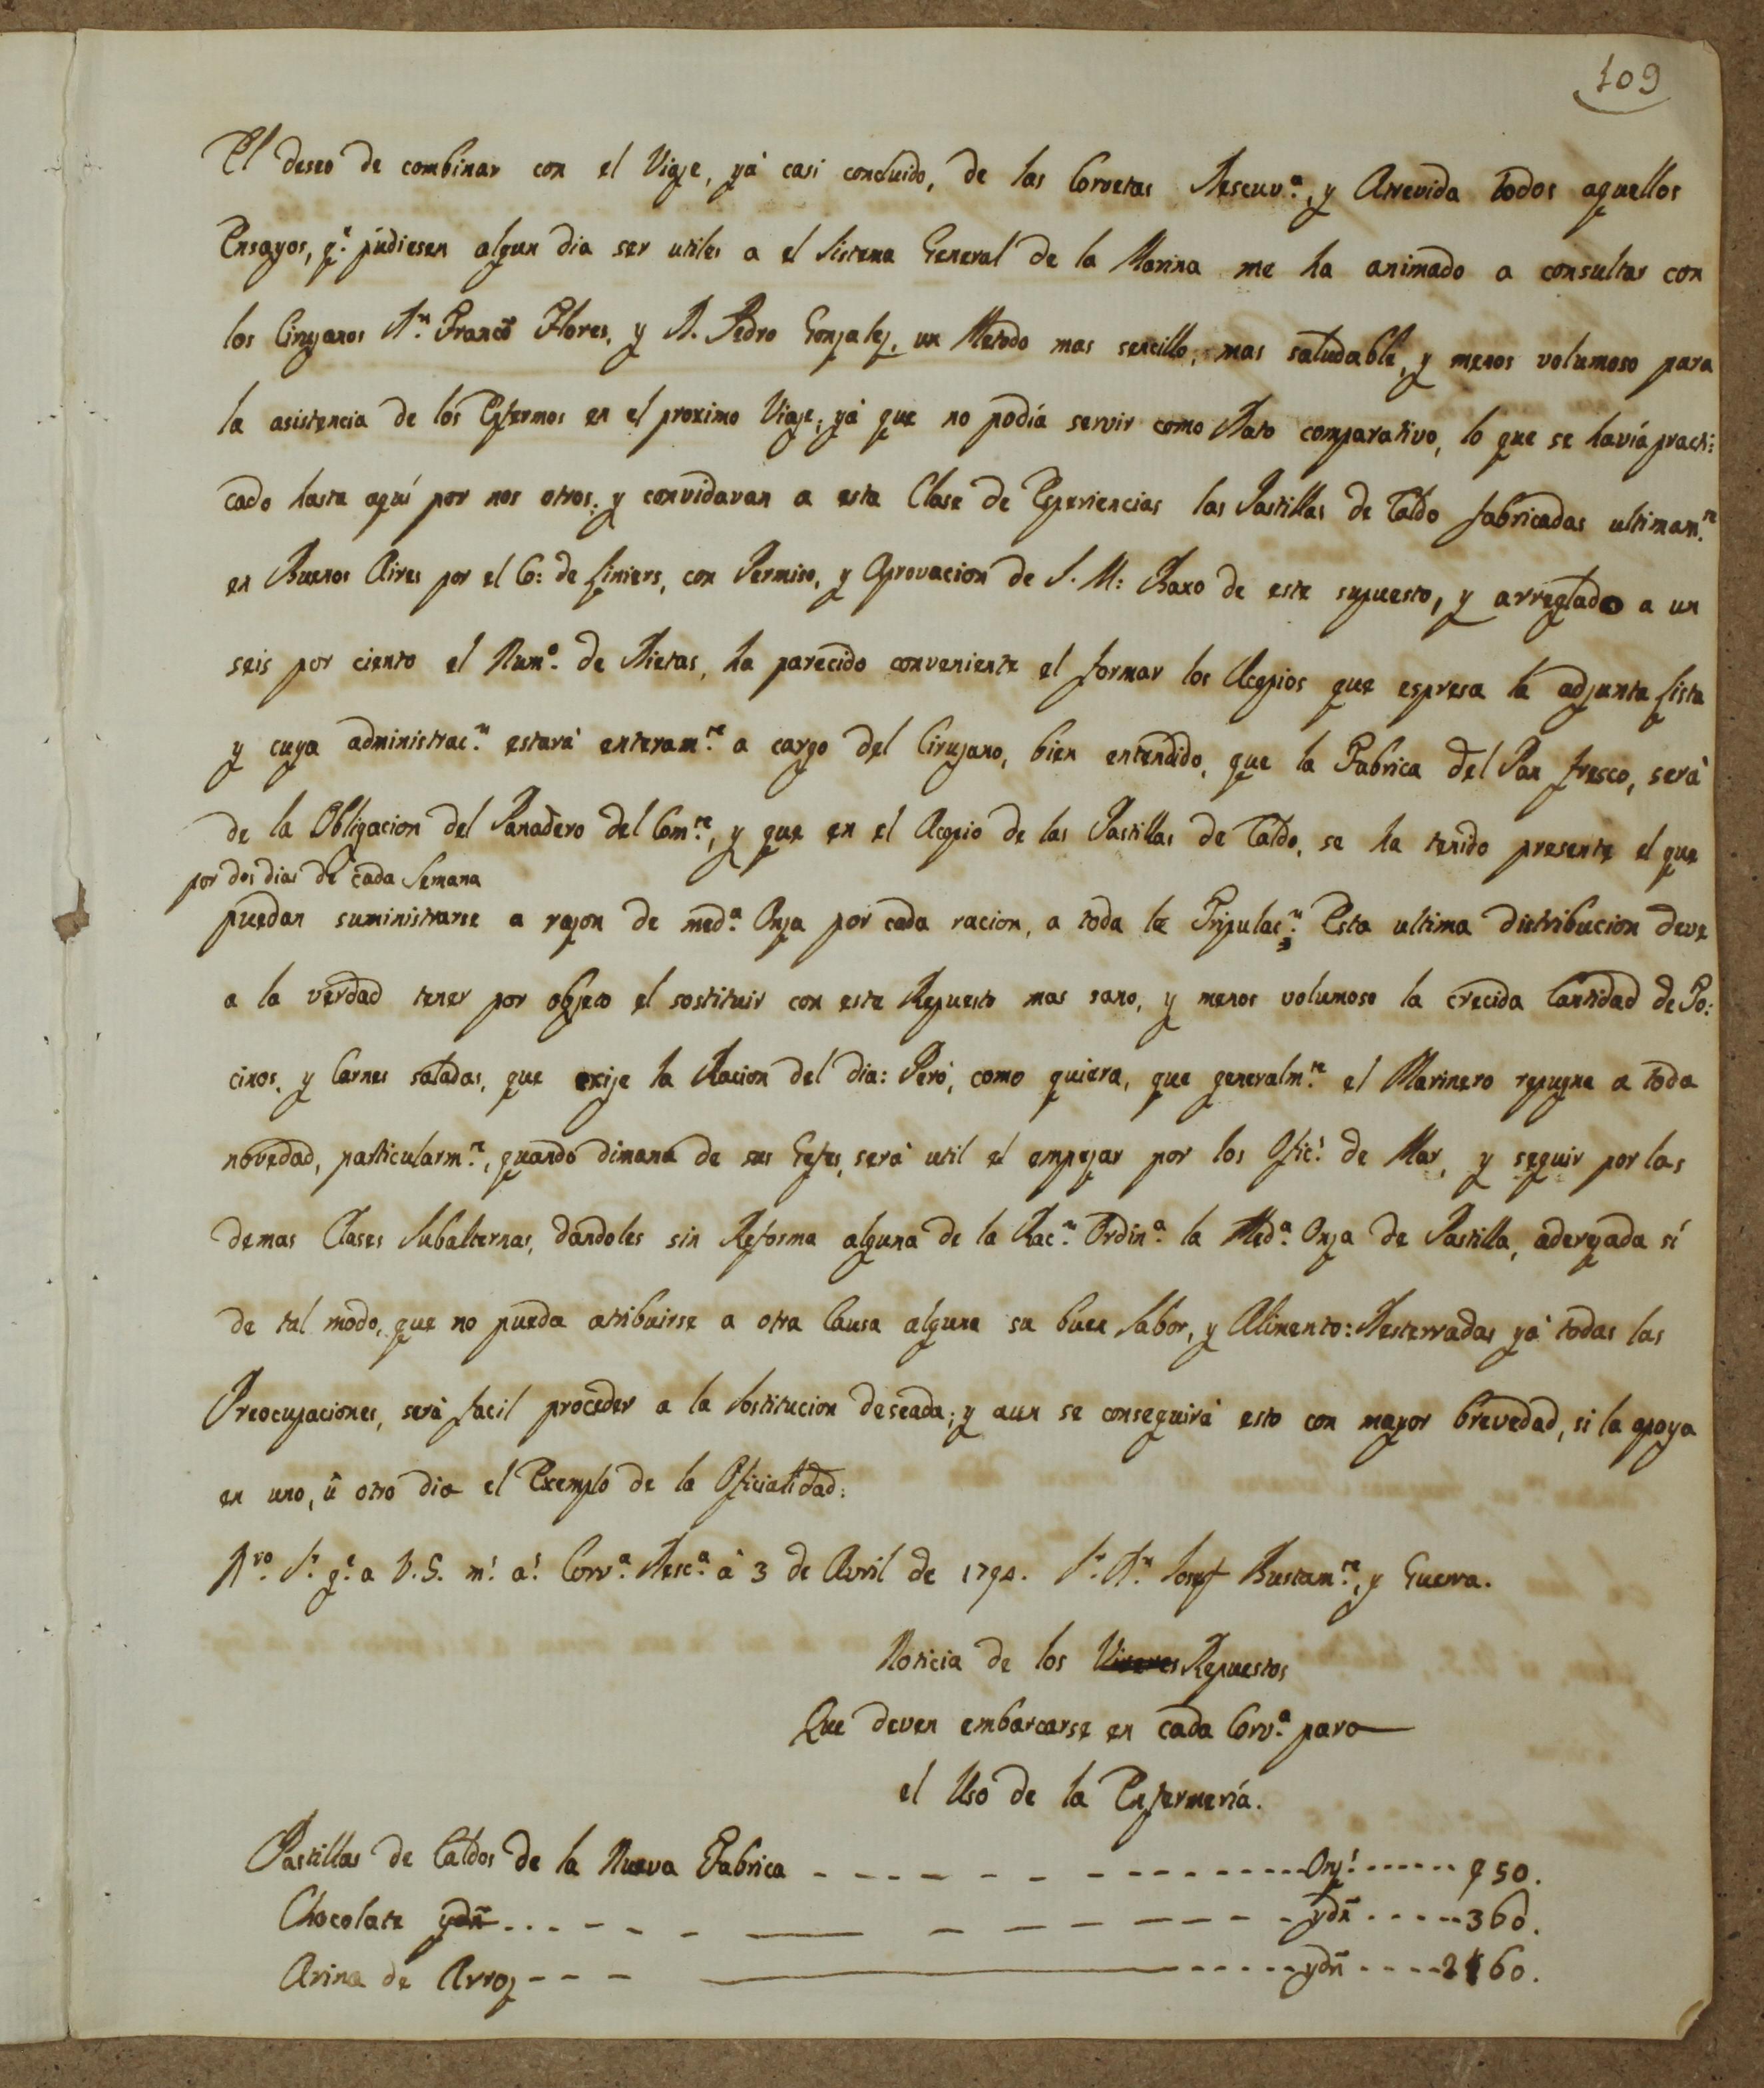 109
El deseo de combinar con el Viage, yá casi concluido, de las Corvetas Descuv.ª, y Atrevida todos aquellos
Ensayos, q.e pudiesen algun dia ser utiles a el Sistema General de la Marina me ha animado a consultar con
los Cirujanos D.n Franco Flores, y D. Pedro Gonzalez, un Metodo mas sencillo, mas saludable, y menos volumoso para
la asistencia de los Efermos en el proximo Viage; yá que no podía servir como Dato comparativo, lo que se havía practi:
cado hasta aquí por nos otros; y convidavan a esta Clase de Esperiencias las Pastillas de Caldo fabricadas ultimam.te
en Buenos Aires por el Co: de Liniers, con Permiso, y Aprovacion de S. M: Baxo de este supuesto, y arreglado a un
seis por ciento el Num.o de Dietas, ha parecido conveniente el formar los Acopios que espresa la adjunta Lista
y cuya administrac.n estará enteram.te a cargo del Cirujano, bien entendido, que la Fabrica del Pan fresco, será
de la Obligacion del Panadero del Com.te, y que en el Acopio de las Pastillas de Caldo, se ha tenido presente el que
por dos dias de cada Semana
puedan suministrarse a razon de med.ª Onza por cada racion, a toda la Tripulac.n: Esta ultima distribucion deve
a la verdad tener por objeto el sostituir con este Repuesto mas sano, y menos volumoso la crecida Cantidad de To:
cinos, y Carnes saladas, que exije la Racion del dia: Pero, como quiera, que generalm.te el Marinero repugne a toda
novedad, particularm.te, quando dimana de sus Gefes, será util el empezar por los Ofic.s de Mar, y seguir por las
demas Clases Subalternas, dandoles sin Reforma alguna de la Rac.n Ordin.ª la Med.ª Onza de Pastilla, aderezada sí
de tal modo, que no pueda atribuirse a otra Causa alguna su buen Sabor, y Alimento: Desterradas yá todas las
Preocupaciones, será facil proceder a la Sostitucion deseada; y aun se conseguirá esto con mayor brevedad, si la apoya
en uno, ú otro dia el Exemplo de la Oficialidad:
N.ro S.r g.e a V.S. m.s a.s Corv.ª Desc.ª á 3 de Avril de 1794. S.r D.n Josef Bustam.te, y Guerra.
Noticia de los Viveres Repuestos
Que deven embarcarse en cada Corv.ª para
el Uso de la Enfermería.
Pastillas de Caldos de la Nueva Fabrica - - - Onz.s - - - 950.
Chocolate ydn - - - ydn - - - 360.
Arina de Arroz - - - ydn - - - 2160.